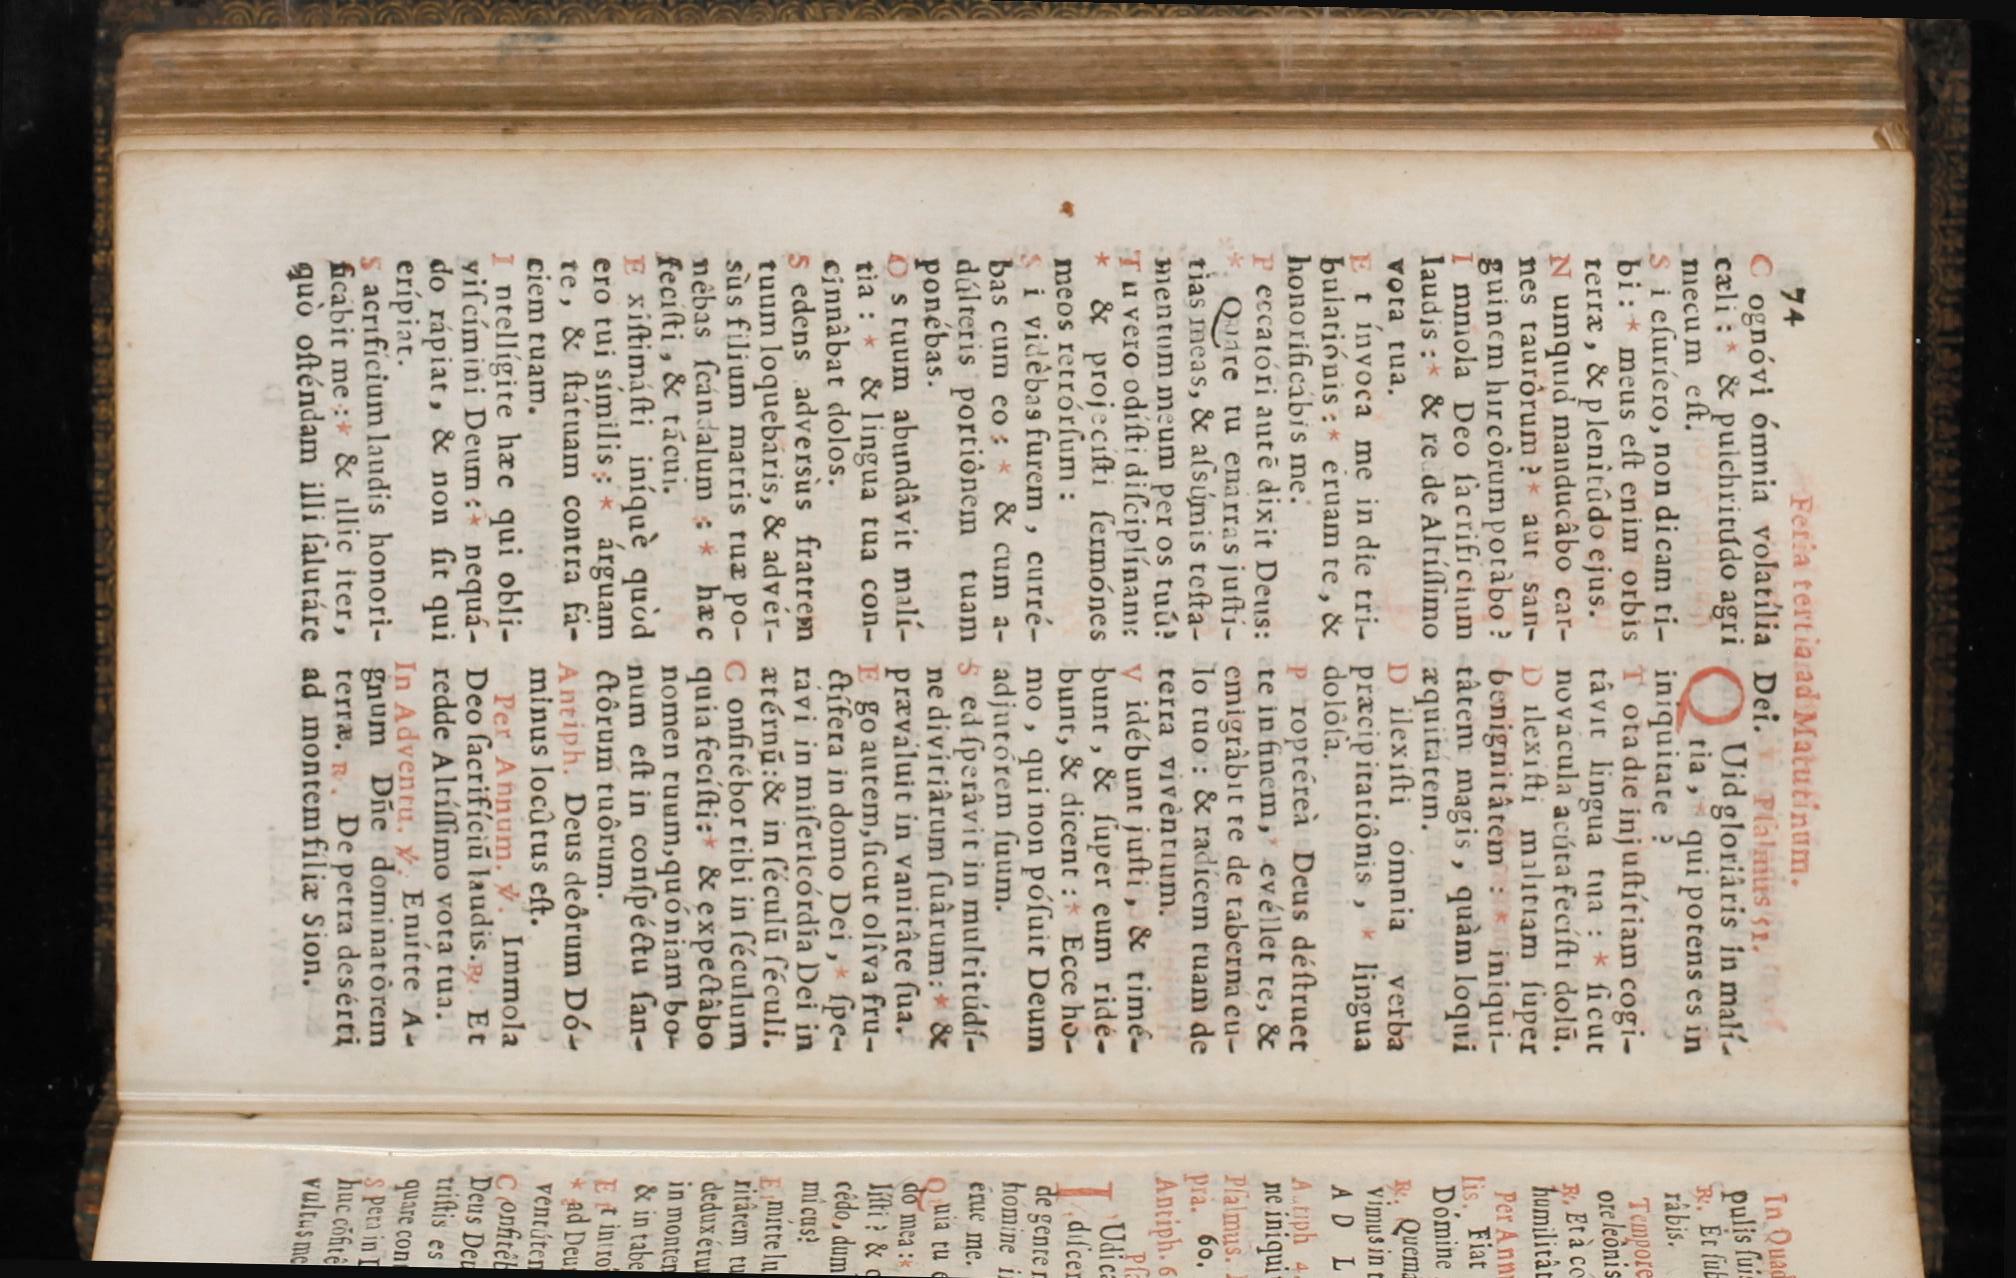 74
Feria tertia ad Matutinum.
C ognóvi ómnia volatília
cæli : * & pulchritúdo agri
mecum eſt.
S i eſuríero, non dicam ti-
bi : * meus eſt enim orbis
terræ, & plenitûdo ejus.
N umquid manducâbo car-
nes taurôrum ? * aut san-
guinem hircôrum potàbo ?
I mmola Deo ſacrificium
laudis : * & re de de Altíſſimo
vota tua.
E t ínvoca me in die tri-
bulatiónis : * eruam te, &
honorificábis me.
P eccatóri autē dixit Deus:
* Quare tu enarras juſti-
tias meas, & aſsúmis teſta-
mentum meum per os tuú?
T u vero odíſti diſciplínam:
* & projecíſti ſermónes
meos retrórſum :
S i vidêbas furem , curré-
bas cum eo : * & cum a-
dúlteris portiônem tuam
ponébas.
O s tuum abundâvit malí-
tia : * & lingua tua con-
cinnâbat dolos.
S edens adversùs fratrem
tuum loquebáris, & advér-
sùs filium matris tuæ po-
nêbas ſcandalum : * hæc
feciſti, & tácui.
E xiſtimáſti iníquè quòd
ero tui símilis : * árguam
te, & ſtátuam contra fá-
ciem tuam.
I ntellígite hæc qui obli-
viſcímini Deum : * nequá-
do rápiat, & non ſit qui
erípiat.
S acrifícium laudis honori-
ficábit me : * & illic iter,
quò oſténdam illi ſalutáre
Dei. Pſalmus 51.
QUid gloriâris in malí-
tia, * qui potens es in
iniquitate ?
T ota die injuſtítiam cogi-
tâvit lingua tua : * ſicut
novácula acúta fecíſti dolū.
D ilexiſti malitiam ſuper
benignitâtem : * iniqui-
tâtem magis , quàm loqui
æquitátem.
D ilexiſti ómnia verba
præcipitatiônis , * lingua
dolôſa.
P roptéreà Deus déſtruet
te in finem, * evéllet te, &
emigrâbit te de tabernacu-
lo tuo : & radícem tuam de
terra vivêntium.
V idébunt juſti, & timé-
bunt , & ſuper eum ridé-
bunt, & dicent : * Ecce ho-
mo , qui non póſuit Deum
adjutórem ſuum.
S ed ſperâvit in multitúdí-
ne divitiârum ſuârum : * &
præváluit in vanitâte ſua.
E go autem, ſicut olîva fru-
ctífera in domo Dei , * ſpe-
rávi in miſericórdia Dei in
ætérnū:& in ſéculū ſéculi.
C onfitébor tibi in ſéculum
quia fecíſti: * & expectâbo
nomen tuum, quóniam bo-
num eſt in conſpéctu ſan-
ctôrum tuôrum.
Antiph. Deus deôrum Dó-
minus locûtus eſt.
Per Annum. ℣. Immola
Deo ſacrifíciū laudis. ℟. Et
redde Altíſſimo vota tua.
In Adventu. ℣. Emítte A-
gnum Dñe dominatôrem
terræ. ℟. De petra desérti
ad montem filiæ Sion.
In Quad
pulis ſuis
℟. Et ſub
râbis.
Tempore
ore leônis
℟. Et à có
humilitât
Per Ann
lis. Fiat
Dómine
℟. Quema
vimus in t
A D L
Antiph 4.
ne iniqui
Pſalmus.
pra. 60.
Antiph. 6
Pſ
IUdica
diſcer
de gente n
hómine i
érue me.
Quia tu e
do mea : *
líſti ? & q
cêdo, dum
mícus?
E mitte lu
ritâtem tu
deduxérun
in montem
& in tabe
E t in ro
* ad Deum
ventúten
Confitêb
Deus Deu
triſtis es
quare con
S pera in D
huc cōfitê
vultus me